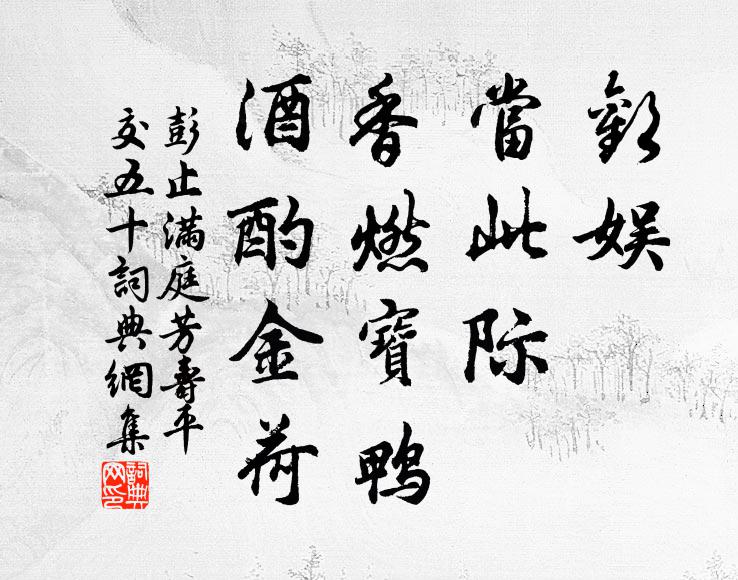 歡娛
當此际
香燃寶鴨
酒酌金荷
彭止滿庭芳壽平
交五十詞典網集
詞典网